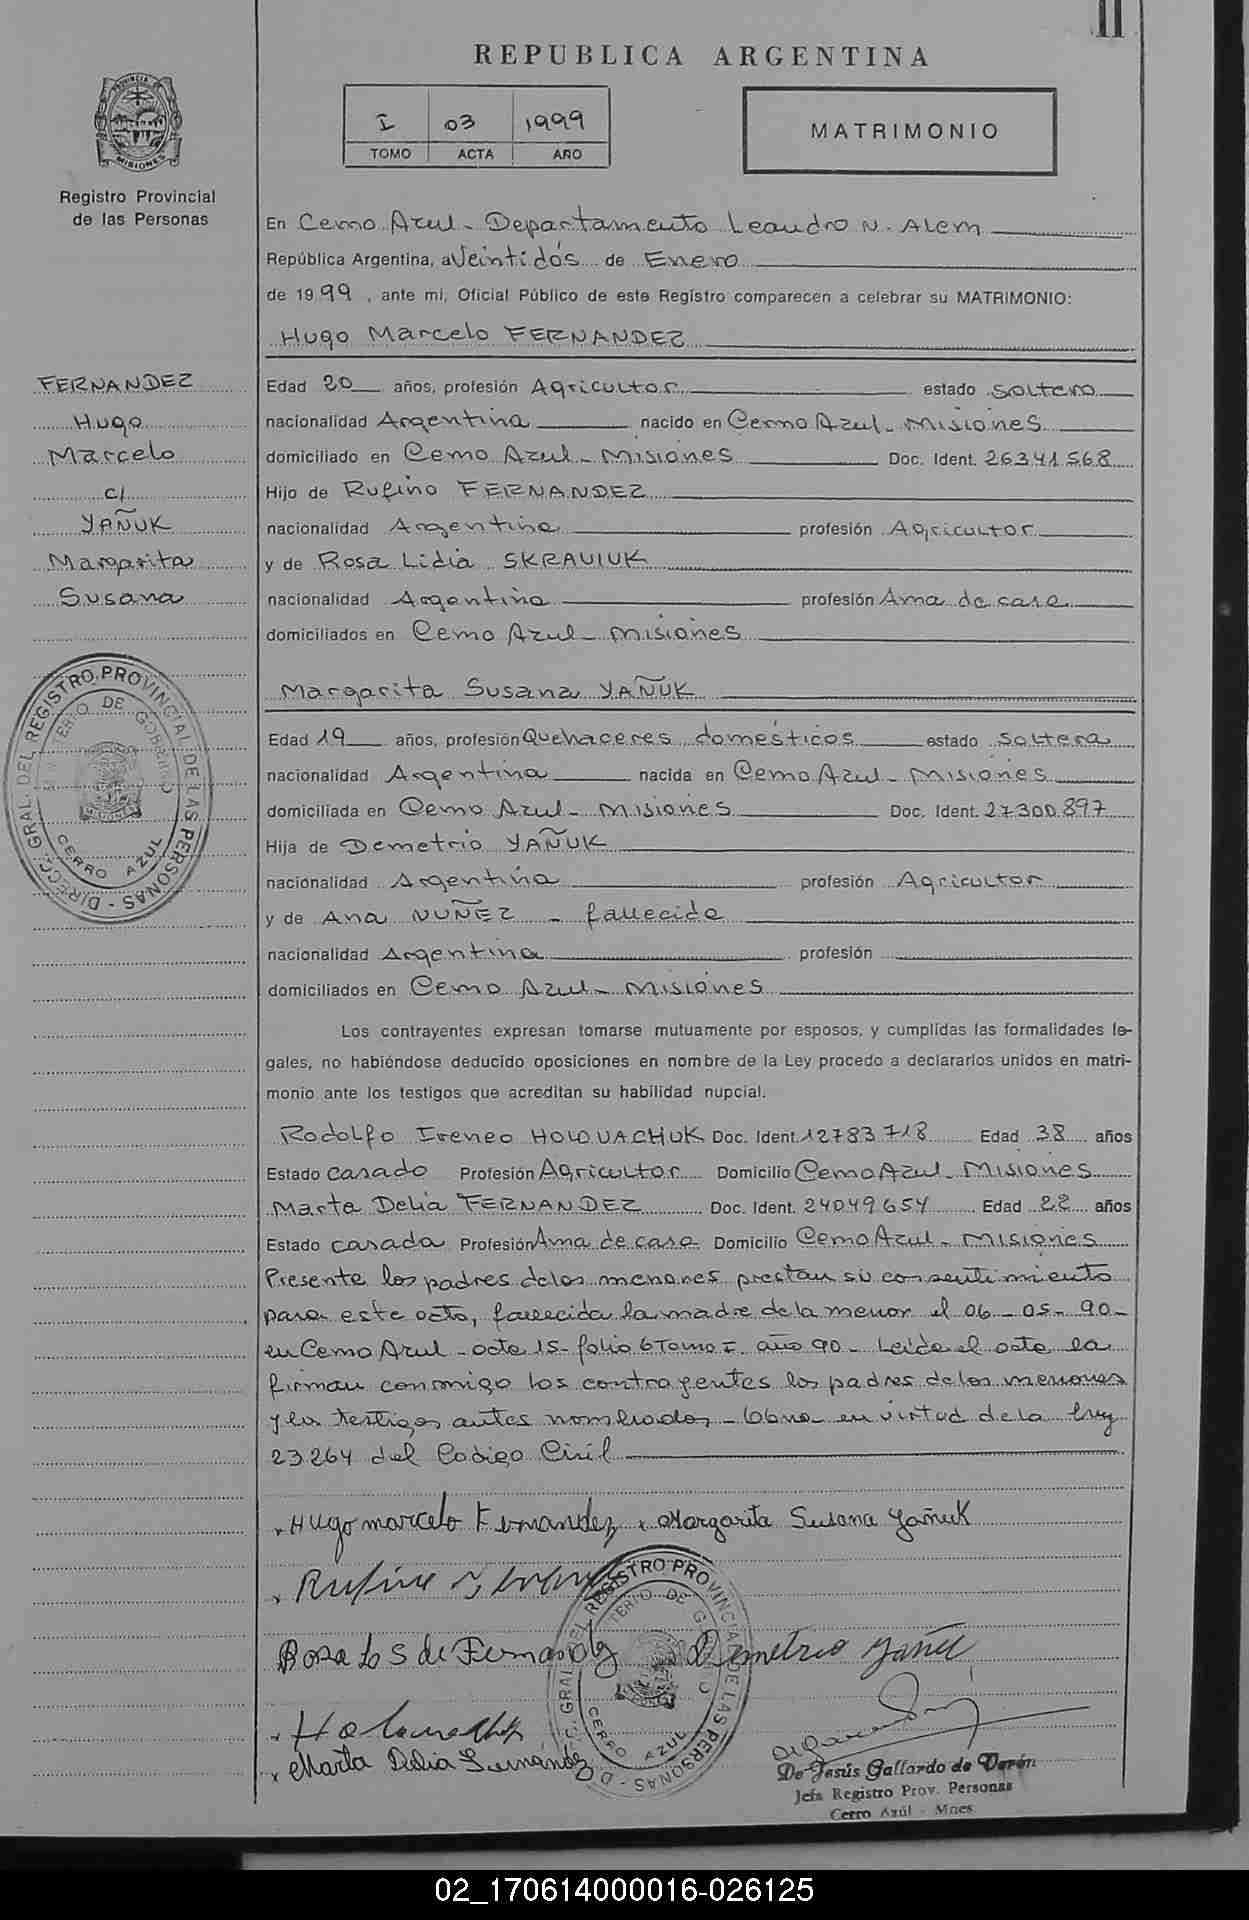 II
REPUBLICA ARGENTINA
PROVINCIA DE MISIONES
Registro Provincial
de las Personas
I 03 1999
TOMO ACTA AÑO
MATRIMONIO
En Cerro Azul - Departamento Leandro N. Alem
República Argentina, a Veintidós de Enero
de 1999, ante mi, Oficial Público de este Registro comparecen a celebrar su MATRIMONIO:
Hugo Marcelo FERNANDEZ
FERNANDEZ
Hugo
Marcelo
c/
YAÑUK
Margarita
Susana
Edad 20 años, profesión Agricultor estado soltero
nacionalidad Argentina nacido en Cerro Azul - Misiones
domiciliado en Cerro Azul - Misiones Doc. Ident. 26341568
Hijo de Rufino FERNANDEZ
nacionalidad Argentina profesión Agricultor
y de Rosa Lidia SKRAVIUK
nacionalidad Argentina profesión Ama de casa
domiciliados en Cerro Azul - Misiones
Margarita Susana YAÑUK
Edad 19 años, profesión Quehaceres domésticos estado soltera
nacionalidad Argentina nacida en Cerro Azul - Misiones
domiciliada en Cerro Azul - Misiones Doc. Ident. 27300897
Hija de Demetrio YAÑUK
nacionalidad Argentina profesión Agricultor
y de Ana NUÑEZ - fallecida
nacionalidad Argentina profesión
domiciliados en Cerro Azul - Misiones
DIRECC. GRAL. DEL REGISTRO PROVINCIAL DE LAS PERSONAS -
MINISTERIO DE GOBIERNO
CERRO AZUL
Los contrayentes expresan tomarse mutuamente por esposos, y cumplidas las formalidades le-
gales, no habiéndose deducido oposiciones en nombre de la Ley procedo a declararlos unidos en matri-
monio ante los testigos que acreditan su habilidad nupcial.
Rodolfo Ireneo HOLOVACHUK Doc. Ident. 12783718 Edad 38 años
Estado casado Profesión Agricultor Domicilio Cerro Azul - Misiones
Marta Delia FERNANDEZ Doc. Ident. 24049654 Edad 22 años
Estado casada Profesión Ama de casa Domicilio Cerro Azul - Misiones
Presente los padres de los menores prestan su consentimiento
para este acto, fallecida la madre de la menor el 06-05-90-
en Cerro Azul - acta 15 - folio 6 Tomo I año 90 - Leída el acta la
firman conmigo los contrayentes los padres de los menores
y los testigos antes nombrados - en virtud de la Ley
23264 del Codigo Civil
Hugo marcelo Fernandez Margarita Susana Yañuk
Rufino Fernandez
Rosa L S de Fernandez Demetrio Yañuk
Holovachuk
Marta Delia Fernández
DIRECC. GRAL. DEL REGISTRO PROVINCIAL DE LAS PERSONAS -
MINISTERIO DE GOBIERNO
CERRO AZUL
De Jesús Gallardo de Verón
Jefa Registro Prov. Personas
Cerro Azúl - Mnes
02_170614000016-026125